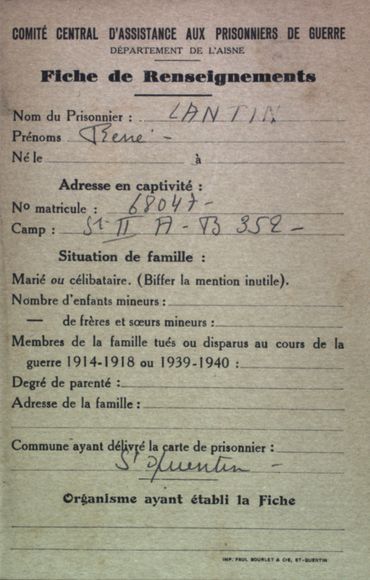 COMITÉ CENTRAL D'ASSISTANCE AUX PRISONNIERS DE GUERRE
DÉPARTEMENT DE L'AISNE
Fiche de Renseignements
Nom du Prisonnier : LANTIN
Prénoms René -
Né le à
Adresse en captivité :
No matricule : 68047 -
Camp : St II A - B 352 -
Situation de famille :
Marié ou célibataire. (Biffer la mention inutile).
Nombre d'enfants mineurs :
— de frères et sœurs mineurs :
Membres de la famille tués ou disparus au cours de la
guerre 1914-1918 ou 1939-1940 :
Degré de parenté :
Adresse de la famille :
Commune ayant délivré la carte de prisonnier :
St Quentin -
Organisme ayant établi la Fiche
IMP. PAUL BOURLET & CIE, ST-QUENTIN